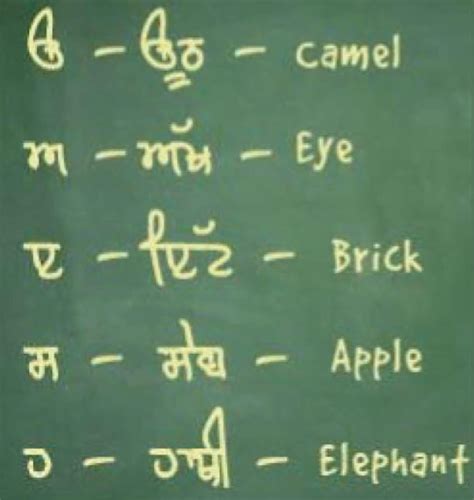 ੳ – ਊਠ – camel
ਅ – ਅੱਖ – Eye
ੲ – ਇੱਟ – Brick
ਸ – ਸੇਬ – Apple
ਹ – ਹਾਥੀ – Elephant